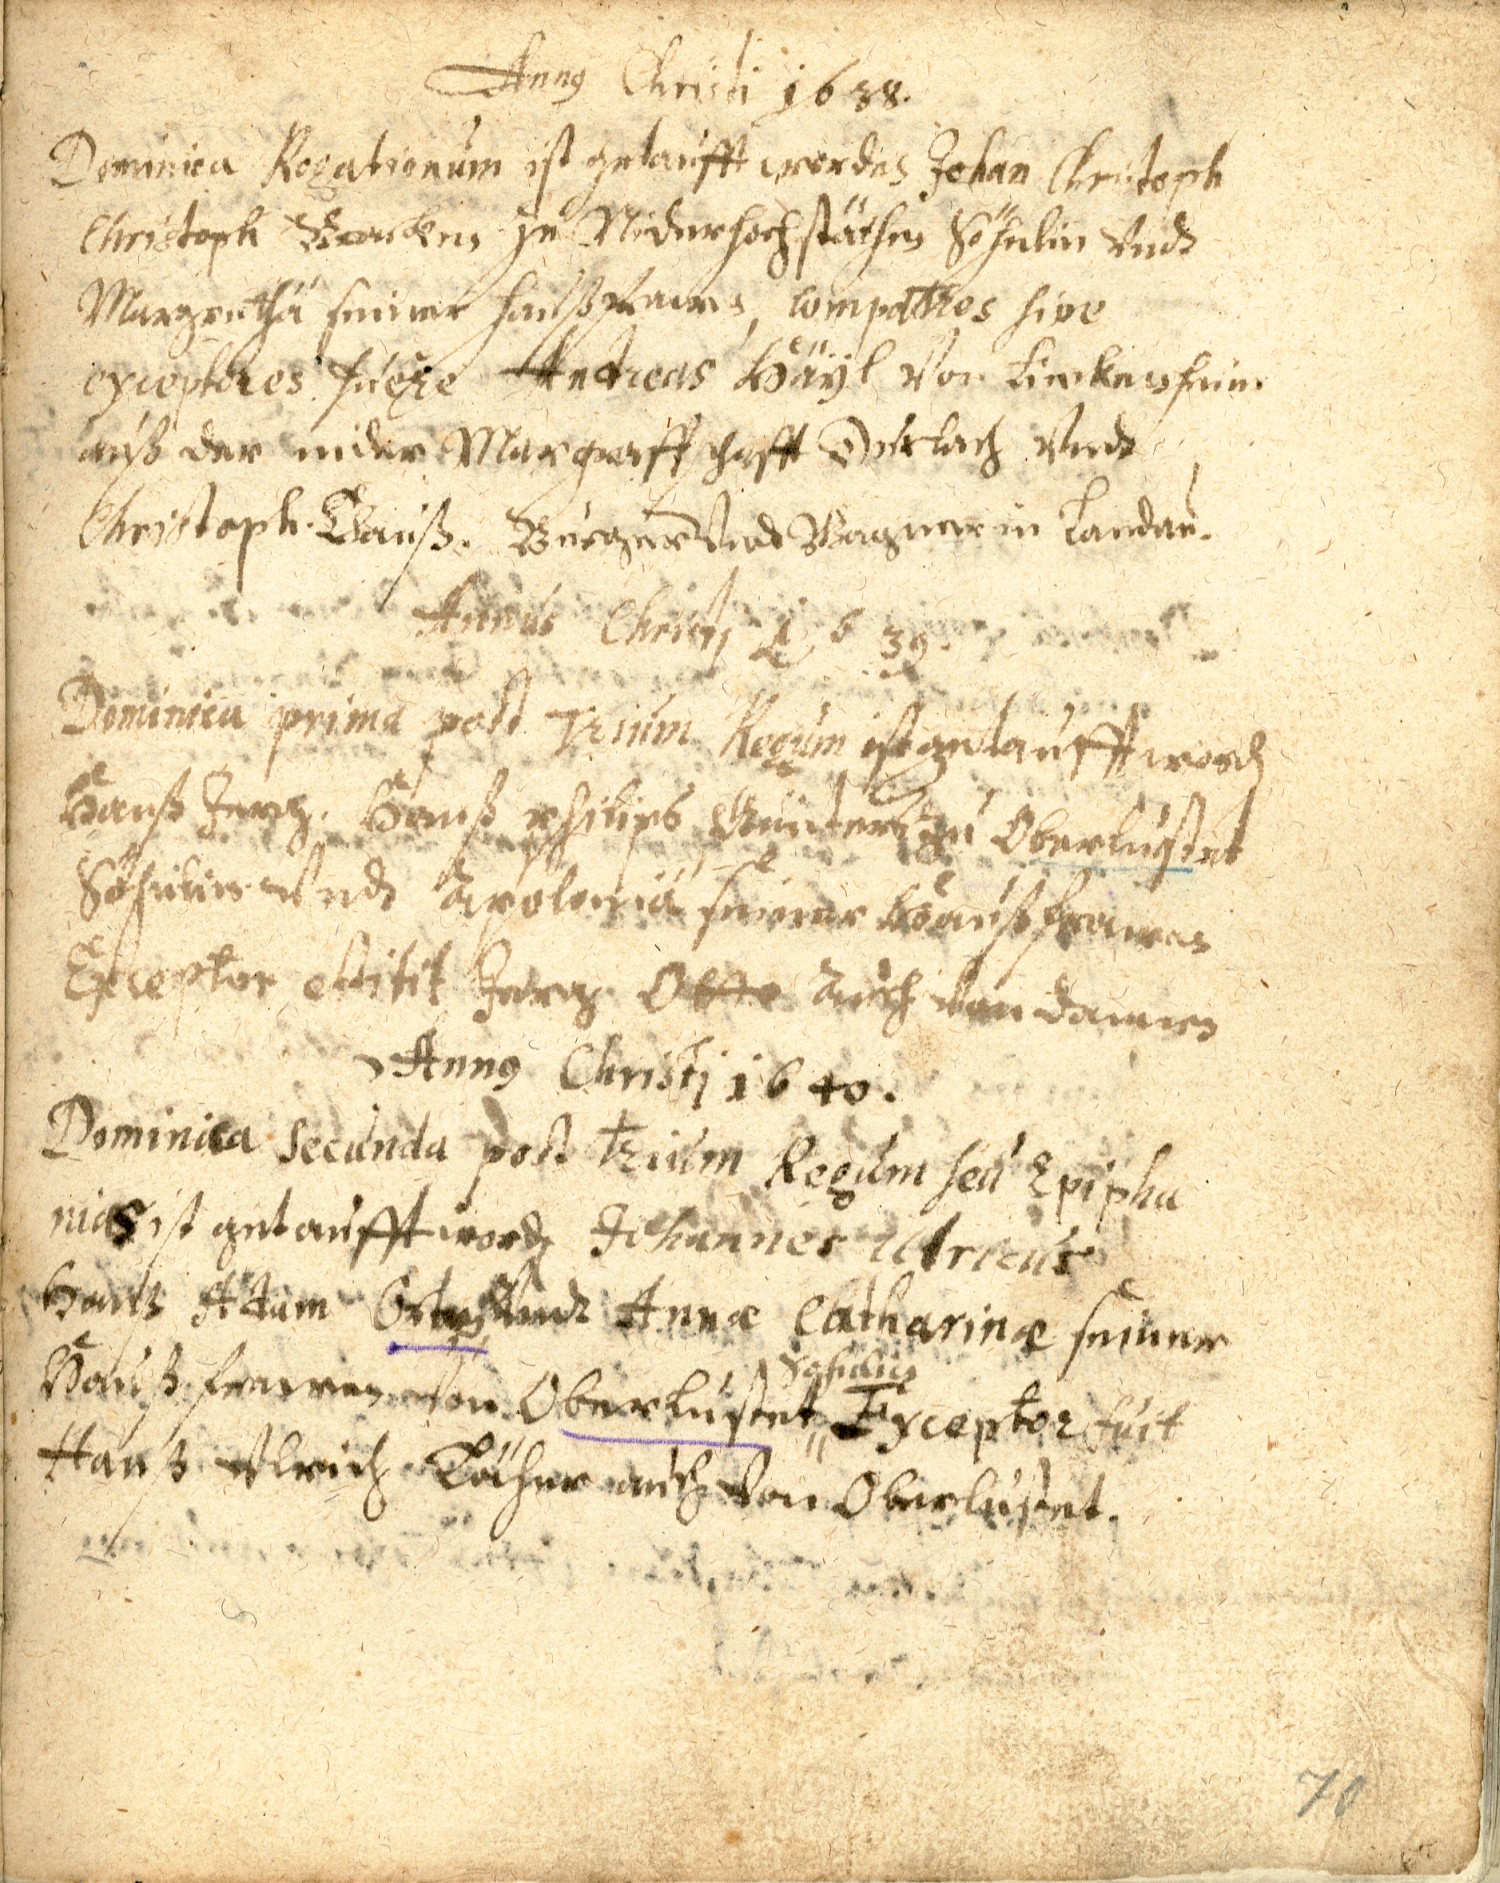 Anno Christi 1638.
Dominica Rogationum ist getaufft worden Johan Christoph
Christoph zu Niderhochstäthen Söhnlin Undt
Margrethä seiner haußfrawen, compatres sive
exceptores fuere Andreas Häÿl Von Linkenheim
auß der nider Margraffschafft Durlach Undt
Christoph Bauß. Burger Und Wagner in Landau.
Annus Christj 1639.
Dominica prima post Trium Regum ist getaufft word
Hanß Jerg. Hanß philips zu Oberlustet
Söhnlin Undt Apolonia seiner Haußfrawen
Exceptor extitit Jerg Otto Auch Von dannen
Anno Christj 1640.
Dominica Secunda post trium Regum seu Epipha
nias ist getaufft word Johannes Ulricus
Hanß Adam Undt Annæ Catharinæ seiner
Söhnlin
Hauß frawen Von Oberlustet Exceptor fuit
Hanß Ulrich auch Von Oberlustet.
70